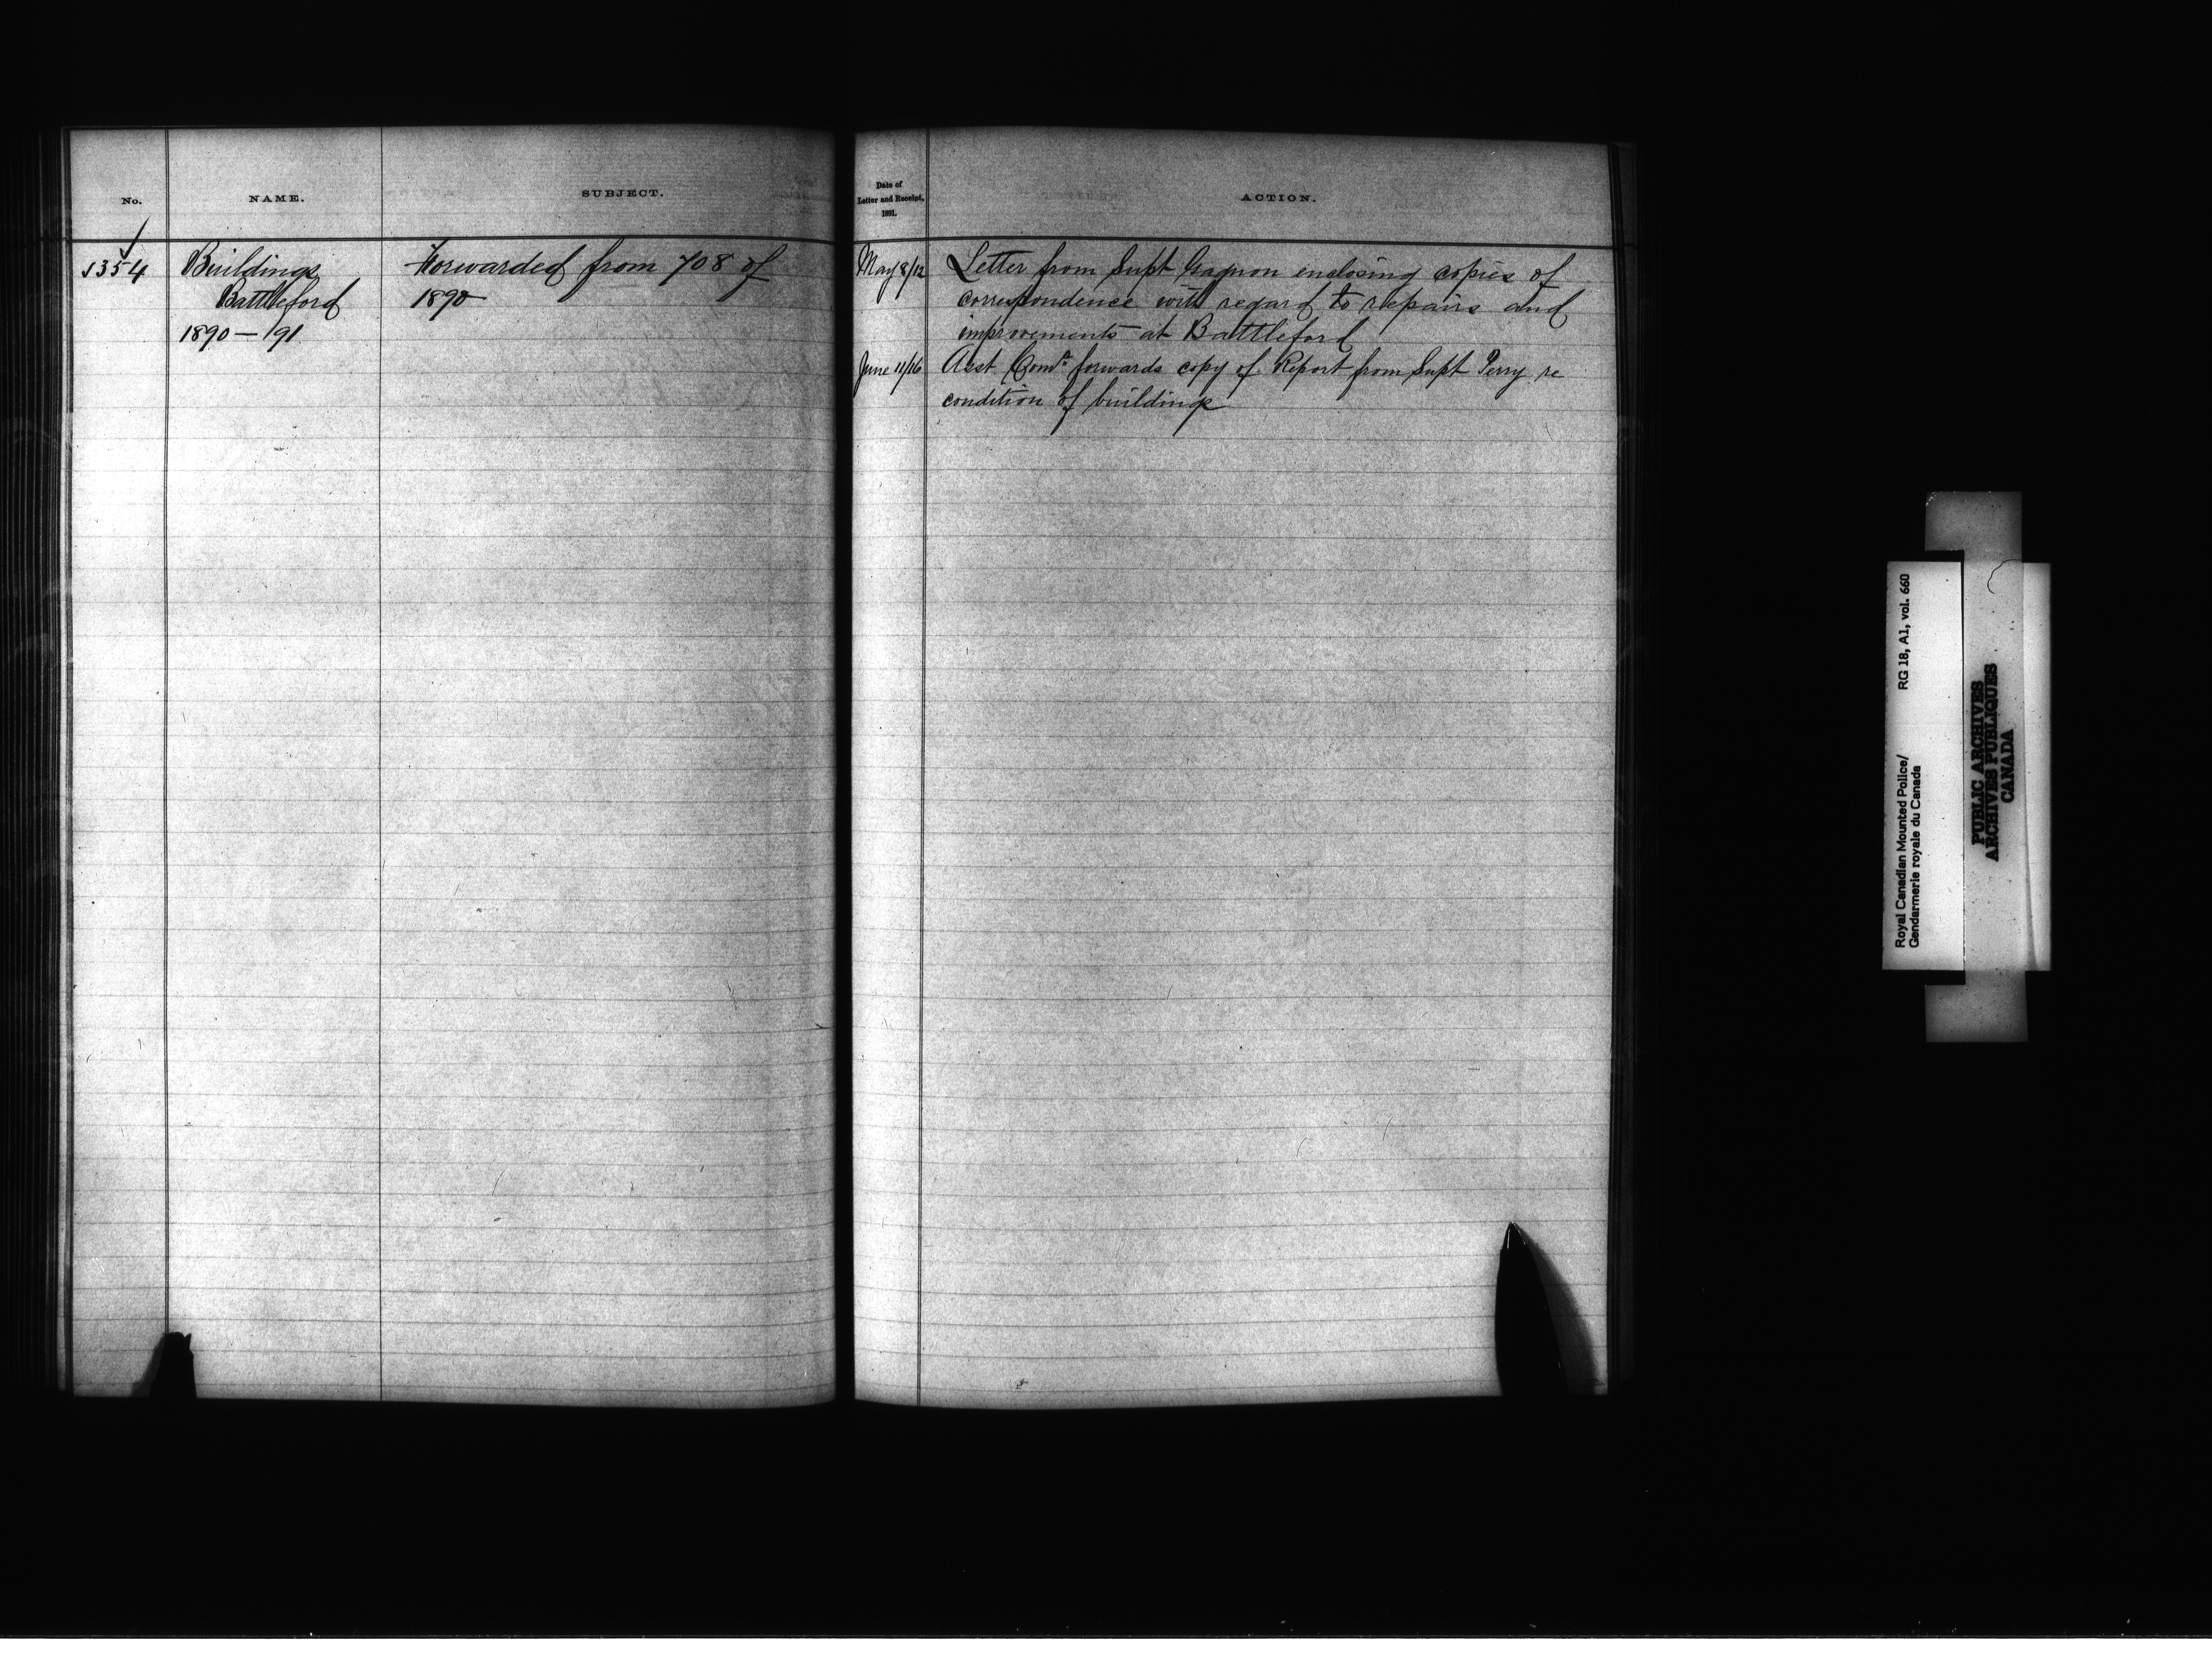 No.
NAME.
SUBJECT.
354
Buildings
Battleford
1890-'91
Forwarded from 708 of
1890
Date of
Letter and Receipt,
1891.
ACTION.
May 8/12
Letter from Supt Gagnon enclosing copies of
correspondence with regard to repairs and
improvements at Battleford
June 11/16
Asst Comr. forwards copy of Report from Supt Perry re
condition of buildings
Royal Canadian Mounted Police/
Gendarmerie royale du Canada
RG 18, A1, vol. 660
PUBLIC ARCHIVES
ARCHIVES PUBLIQUES
CANADA